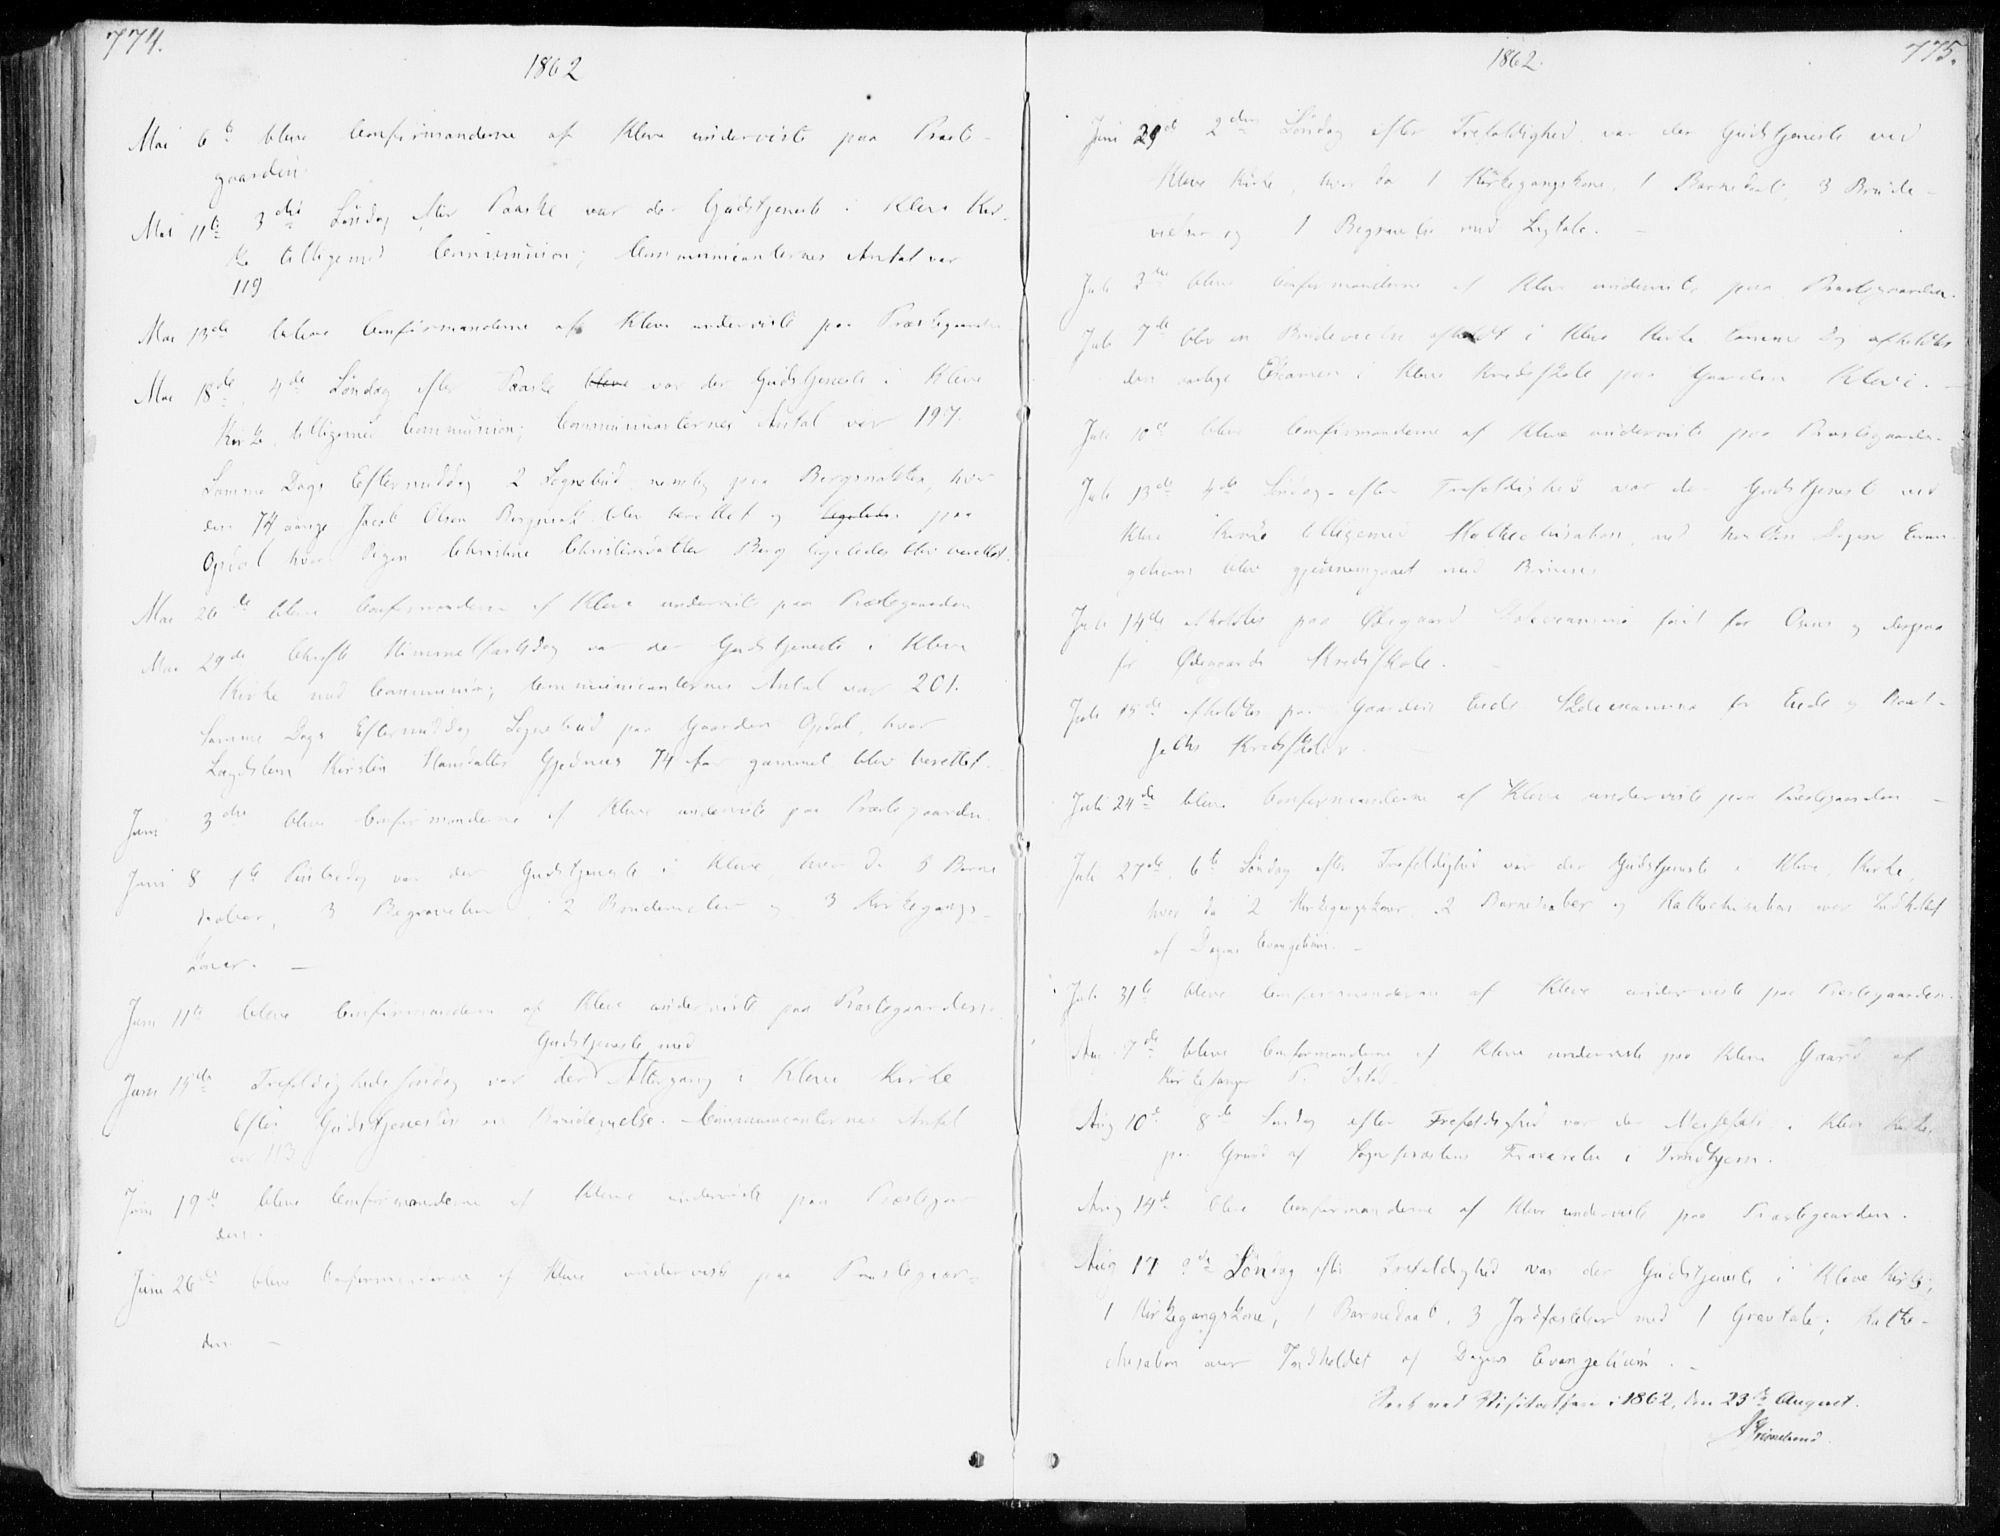 774.
1862
Mai 6te bleve Confirmanderne af Kleve underviste paa Præste-
gaarden.
Mai 11te 3die Söndag efter Paaske var der Gudstjeneste i Kleve Kir-
ke tilligemed Communion; Communicanternes Antal var
119
Mai 13de bleve Confirmanderne af Kleve underviste paa Præstegaarden
Mai 18de, 4de Söndag efter Paaske bleve var der Gudstjeneste i Kleve
Kirke tilligemed Communion; Communicanternes Antal var 197.
Samme Dags Eftermiddag 2 Sognebud nemlig paa hvor
den 74 aarige Jacob Olsen blev berettet og ligeledes paa
Opdal hvor Pigen Christine Christensdatter Berg ligeledes blev berettet.
Mai 26de bleve Confirmanderne af Kleve underviste paa Præstegaarden
Mai 29de Christi Himmelfartsdag var der Gudstjeneste i Kleve
Kirke med Communion; Communicanternes Antal var 201.
Samme Dags Eftermiddag Sognebud paa Gaarden Opdal, hvor
Lægdslem Kirstin Hansdatter 74 Aar gammel blev berettet.
Juni 3die bleve Confirmanderne af Kleve underviste paa Præstegaarden.
Juni 8 1ste Pintsedag var der Gudstjeneste i Kleve, hvor da 5 Barne
daaber, 3 Begravelser, 2 Brudevielser og 3 Kirkegangs-
koner. —
Juni 11te bleve Confirmanderne af Kleve underviste paa Præstegaarden.
Gudstjeneste med
Juni 15de Trefoldighedssöndag var der Altergang i Kleve Kirke
Efter Gudstjenesten en Brudevielse. Communicanternes Antal
var 113
Juni 19de bleve Confirmanderne af Kleve underviste paa Præstegaar
den.
Juni 26de bleve Confirmanderne af Kleve underviste paa Præstegaar-
den. —
1862.
775.
Juni 29de 2den Söndag efter Trefoldighed var der Gudstjeneste ved
Kleve Kirke, hvor da 1 Kirkegangskone, 1 Barnedaab, 3 Brude-
vielser og 1 Begravelse med Ligtale. —
Juli 3die bleve Confirmanderne af Kleve underviste paa Præstegaarden.
Juli 7de blev en Brudevielse afholdt i Kleve Kirke samme Dag afholdtes
den aarlige Examen i Kleve Kredsskole paa Gaarden Kleve. —
Juli 10de bleve Confirmanderne af Kleve underviste paa Præstegaarden.
Juli 13de 4de Söndag efter Trefoldighed var der Gudstjeneste ved
Kleve Kirke tilligemed Kathechisation, ved hvilken Dagens Evan-
gelium blev gjennemgaaet med Börnene.
Juli 14de afholdtes paa Ødegaard Skoleexamen först for Osens og derpaa
for Ødegaards Kredsskole. —
Juli 15de afholdtes paa Gaarden Eide Skoleexamen for Eide og
Kredsskoler. —
Juli 24de bleve Confirmanderne af Kleve underviste paa Præstegaarden —
Juli 27de, 6te Söndag efter Trefoldighed var der Gudstjeneste i Kleve Kirke,
hvor da 2 Kirkegangskoner, 2 Barnedaaber og Kathechisation over Indholdet
af Dagens Evangelium. —
Juli 31te bleve Confirmanderne af Kleve underviste paa Præstegaarden.
Aug 7de bleve Confirmanderne af Kleve underviste paa Kleve Gaard af
Kirkesanger
Aug 10de 8de Söndag efter Trefoldighed var der Messefald i Kleve Kirke,
paa Grund af Sognepræstens Fraværelse i Trondhjem.
Aug 14de bleve Confirmanderne af Kleve underviste paa Præstegaarden.
Aug 17 9de Söndag efter Trefoldighed var der Gudstjeneste i Kleve Kirke;
1 Kirkegangskone, 1 Barnedaab, 3 Jordfæstelser med 1 Gravtale; Kathe-
chisation over Indholdet af Dagens Evangelium. —
Seet ved Visitatsen i 1862, den 23de August.